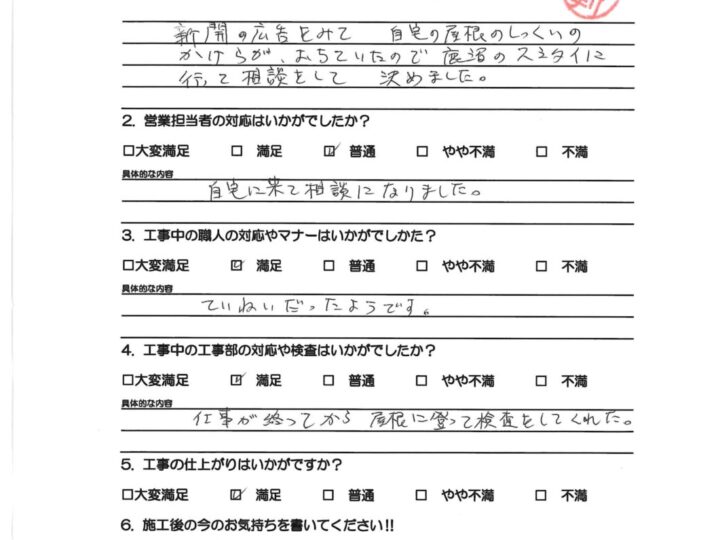 新聞の広告をみて 自宅の屋根のしっくいの
かけらが、おちていたので 鹿沼のスミタイに
行って相談をして 決めました。
2. 営業担当者の対応はいかがでしたか？
□大変満足 □ 満足 ☑ 普通 □ やや不満 □ 不満
具体的な内容
自宅に来て相談になりました。
3. 工事中の職人の対応やマナーはいかがでしかた？
□大変満足 ☑ 満足 □ 普通 □ やや不満 □ 不満
具体的な内容
ていねいだったようです。
4. 工事中の工事部の対応や検査はいかがでしたか？
□大変満足 ☑ 満足 □ 普通 □ やや不満 □ 不満
具体的な内容
仕事が終ってから 屋根に登って検査をしてくれた。
5. 工事の仕上がりはいかがですか？
□大変満足 ☑ 満足 □ 普通 □ やや不満 □ 不満
6. 施工後の今のお気持ちを書いてください!!